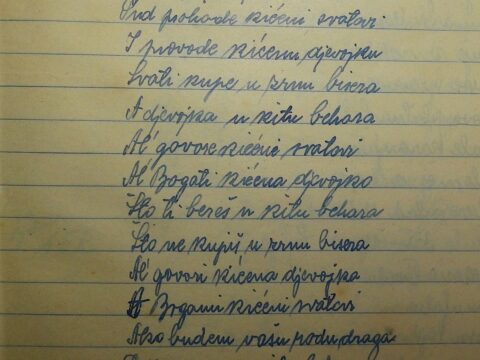 Tud prohode kićeni svatovi
I provode kićenu djevojku
Svati kupe u zrnu bisera
A djevojka u kitu behara
Al' govore kićeni svatovi
Al' Bogati kićena djevojko
Što ti bereš u kitu behara
Što ne kupiš u zrnu bisera
Al' govori kićena djevojka
A Bogami kićeni svatovi
Ako budem vašu rodu draga